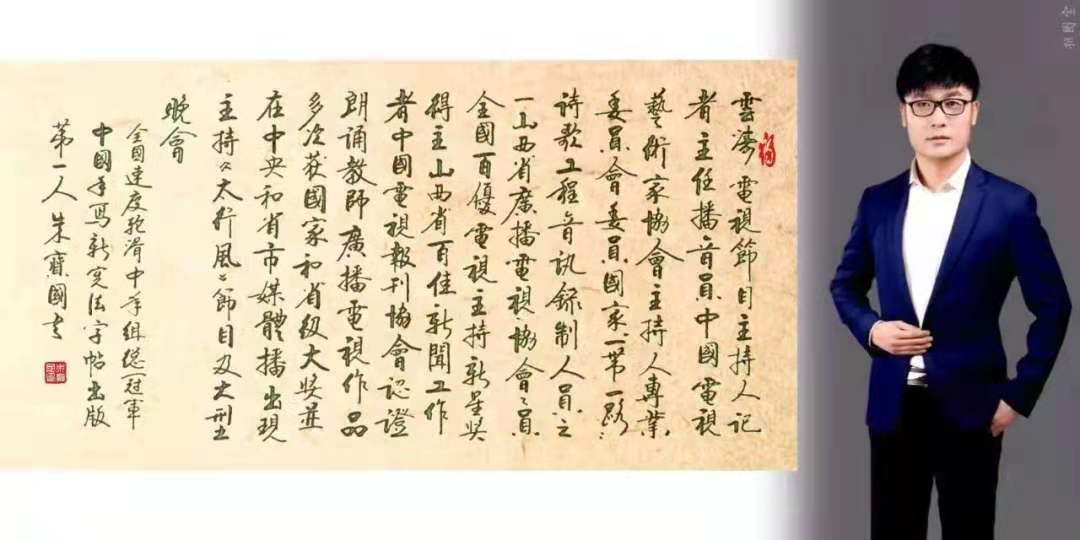 雲濤 電視節目主持人記
者主任播音員中國電視
藝術家協會主持人專業
委員會委員國家一带一路
詩歌工程音訊錄制人員之
一山西省廣播電視協會會員
全國百優電視主持新星奖
得主山西省百佳新聞工作
者中國電視報刊協會認證
朗誦教師廣播電視作品
多次获國家和省级大奖並
在中央和省市媒體播出現
主持《太行風》節目及大型
晚會
全国速度轮滑中年组总冠軍
中國手寫新宪法字帖出版
第一人 朱寶國書
福